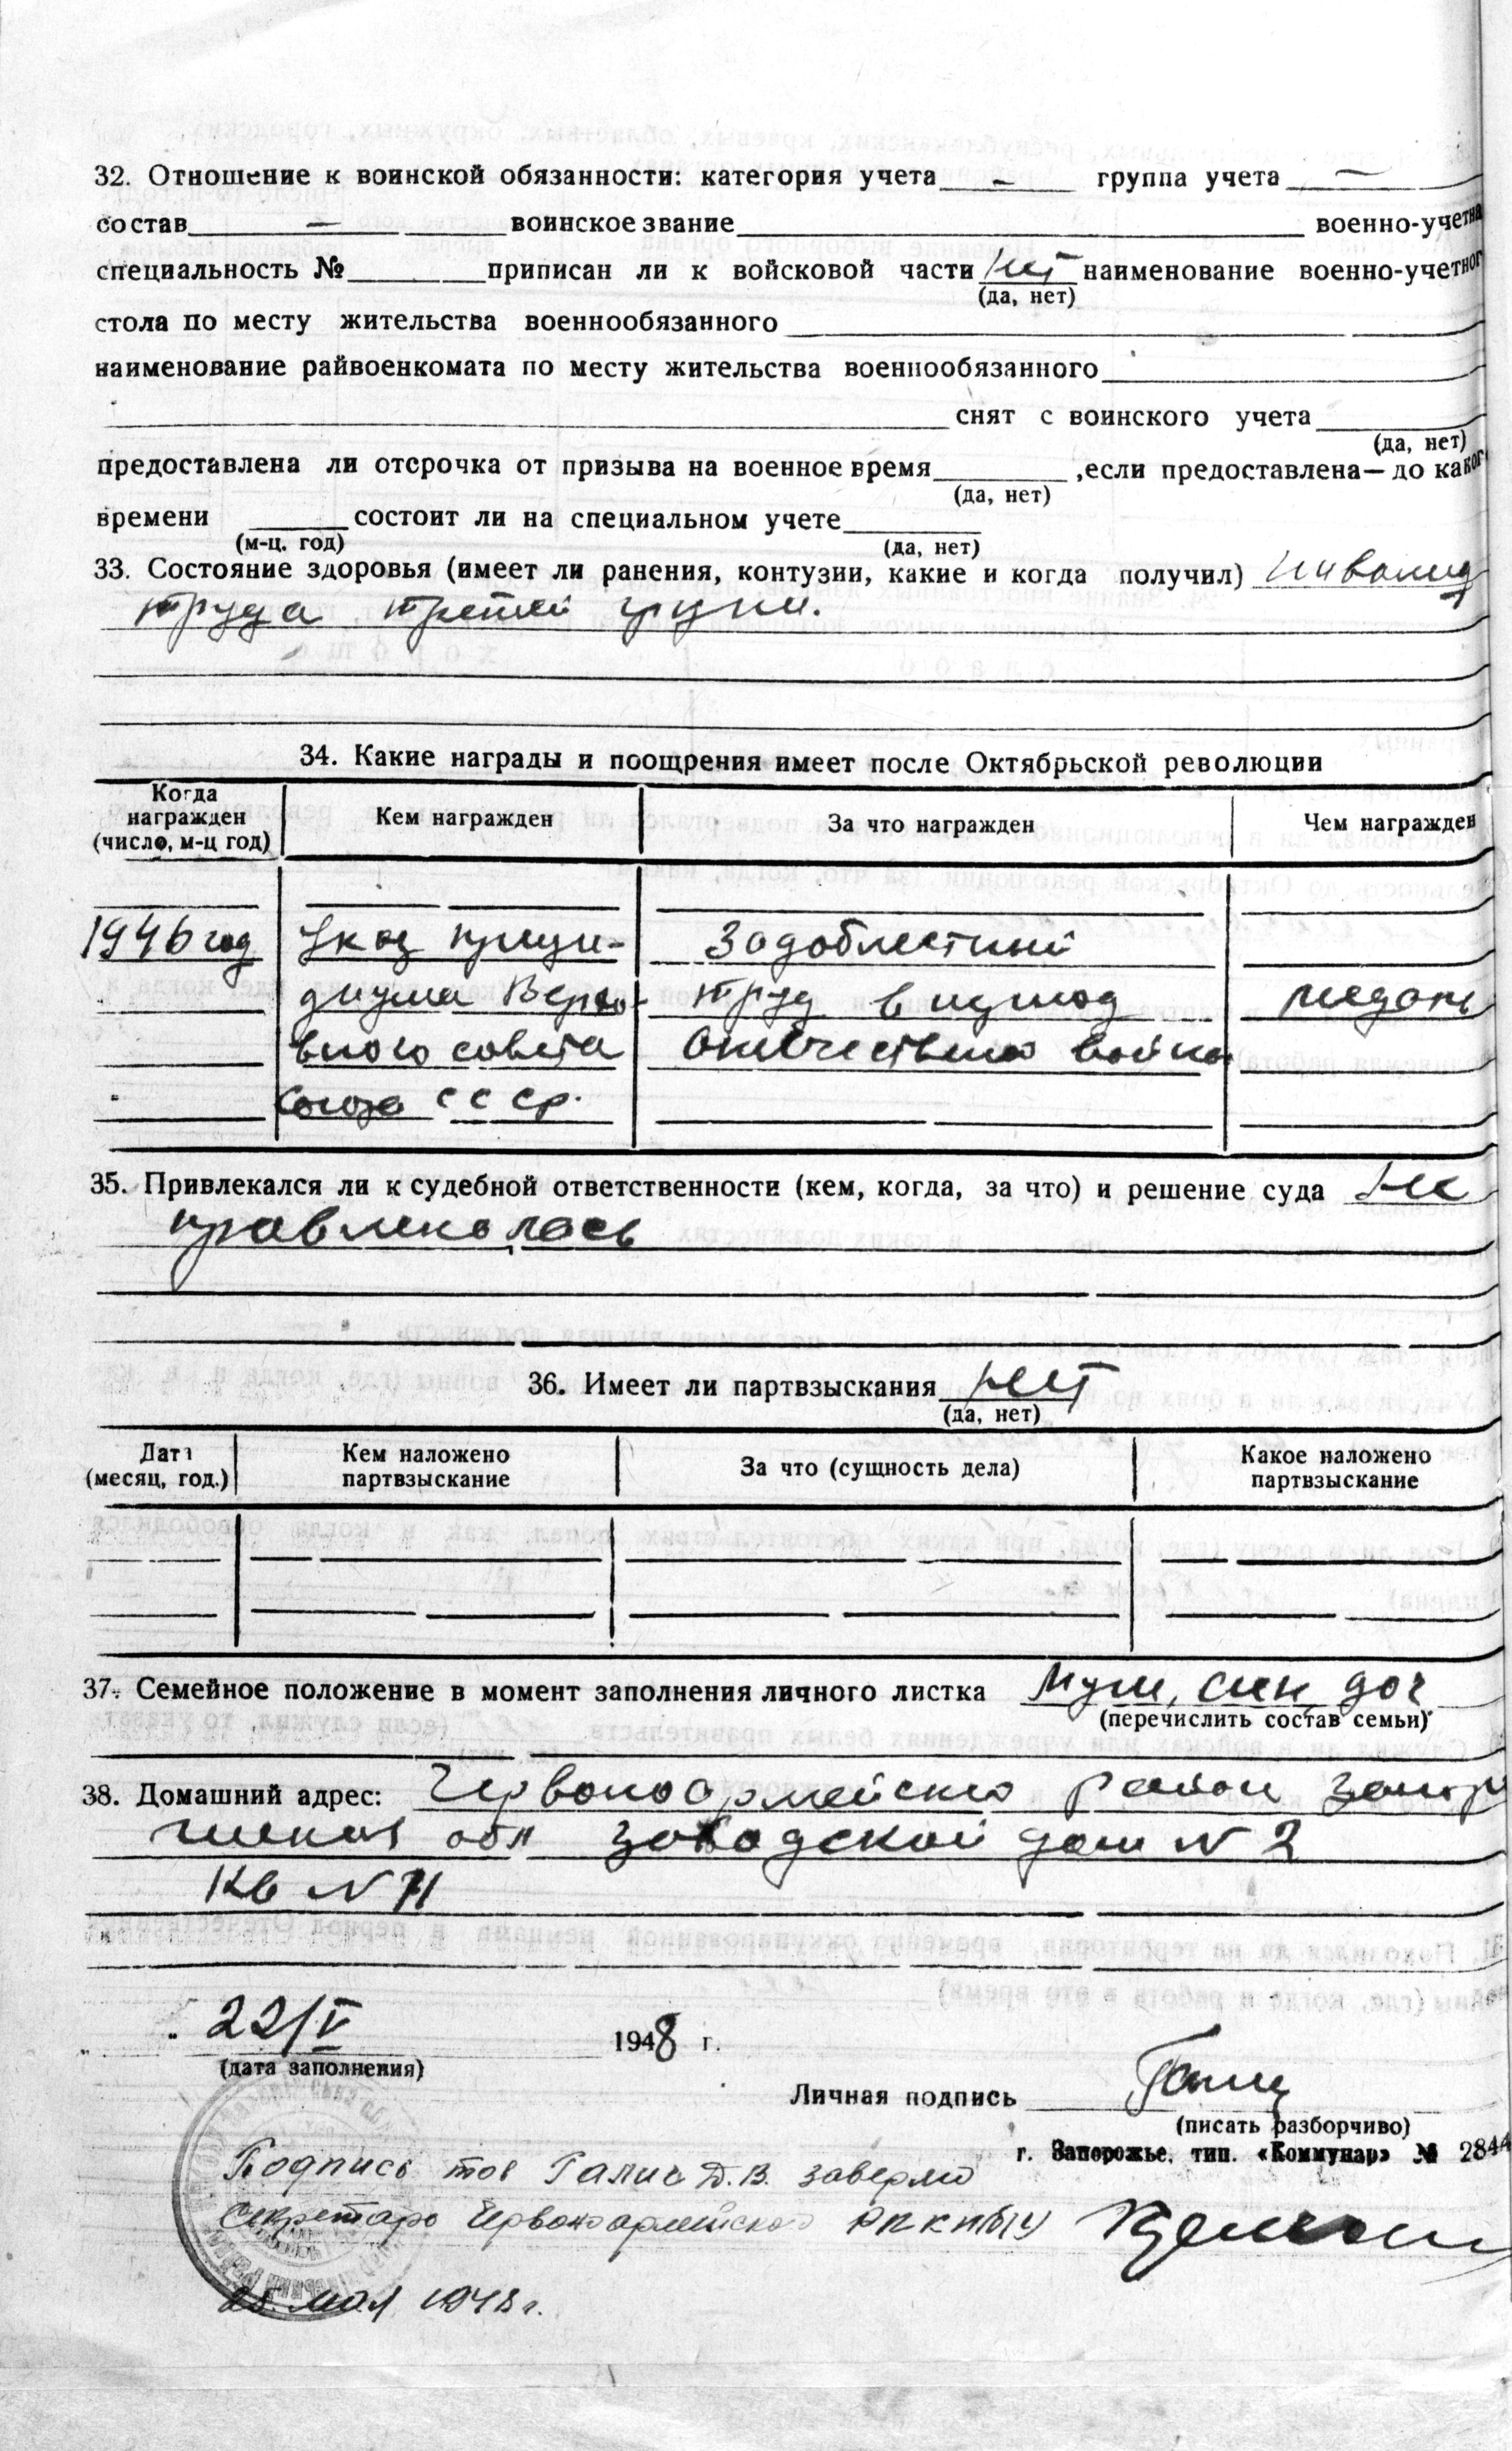 32. Отношение к воинской обязанности: категория учета – группа учета –
состав – воинское звание военно-учетна
специальность № приписан ли к войсковой части нет наименование военно-учетног
(да, нет)
стола по месту жительства военнообязанного
наименование райвоенкомата по месту жительства военнообязанного
снят с воинского учета
(да, нет)
предоставлена ли отсрочка от призыва на военное время ,если предоставлена— до каког
(да, нет)
времени состоит ли на специальном учете
(м-ц. год) (да, нет)
33. Состояние здоровья (имеет ли ранения, контузии, какие и когда получил) инвалид
труда третей групи.
34. Какие награды и поощрения имеет после Октябрьской революции
Когда награжден (число, м-ц год) Кем награжден За что награжден Чем награжден
1946 год Указ прези- Задоблестний
диума Верхо- труд в период медаль
вного совета Отечествено войны
Союза СССр.
35. Привлекался ли к судебной ответственности (кем, когда, за что) и решение суда Не
правлекалась
36. Имеет ли партвзыскания нет
(да, нет)
Дата (месяц, год.) Кем наложено партвзыскание За что (сущность дела) Какое наложено партвзыскание
37. Семейное положение в момент заполнения личного листка Муж, син доч
(перечислить состав семьи)
38. Домашний адрес: Червоноармейский район Запор
жская обл Заводской дом N 2
Кв N 71
22/V 1948 г.
(дата заполнения)
Личная подпись
(писать разборчиво)
г. Запорожье, тип. «Коммунар» № 2844
Подпись тов Галич Д.В. заверяю
Секретарь Червоноармейского РПКП(б)У
25. мая 1948 г.